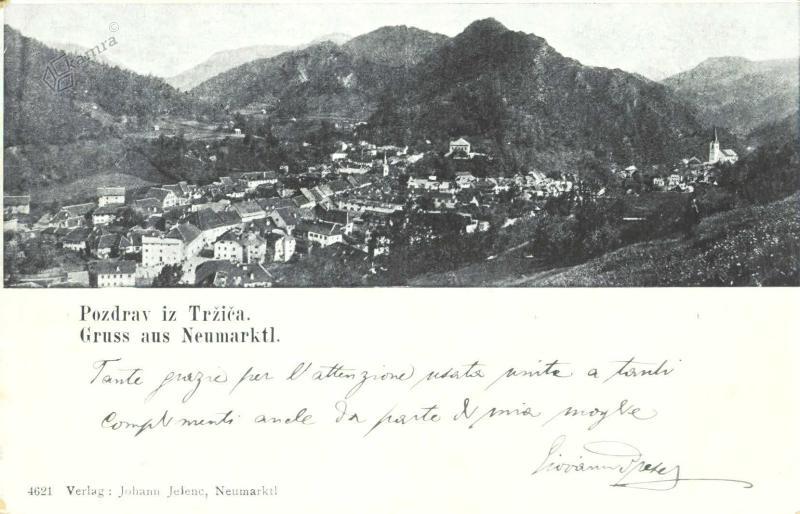 kamra©
Pozdrav iz Tržiča.
Gruss aus Neumarktl.
Tante grazie per l'attenzione usata unite a tanti
complimenti anche da parte di mia moglie
Giovanni
4621 Verlag: Johann Jelenc, Neumarktl